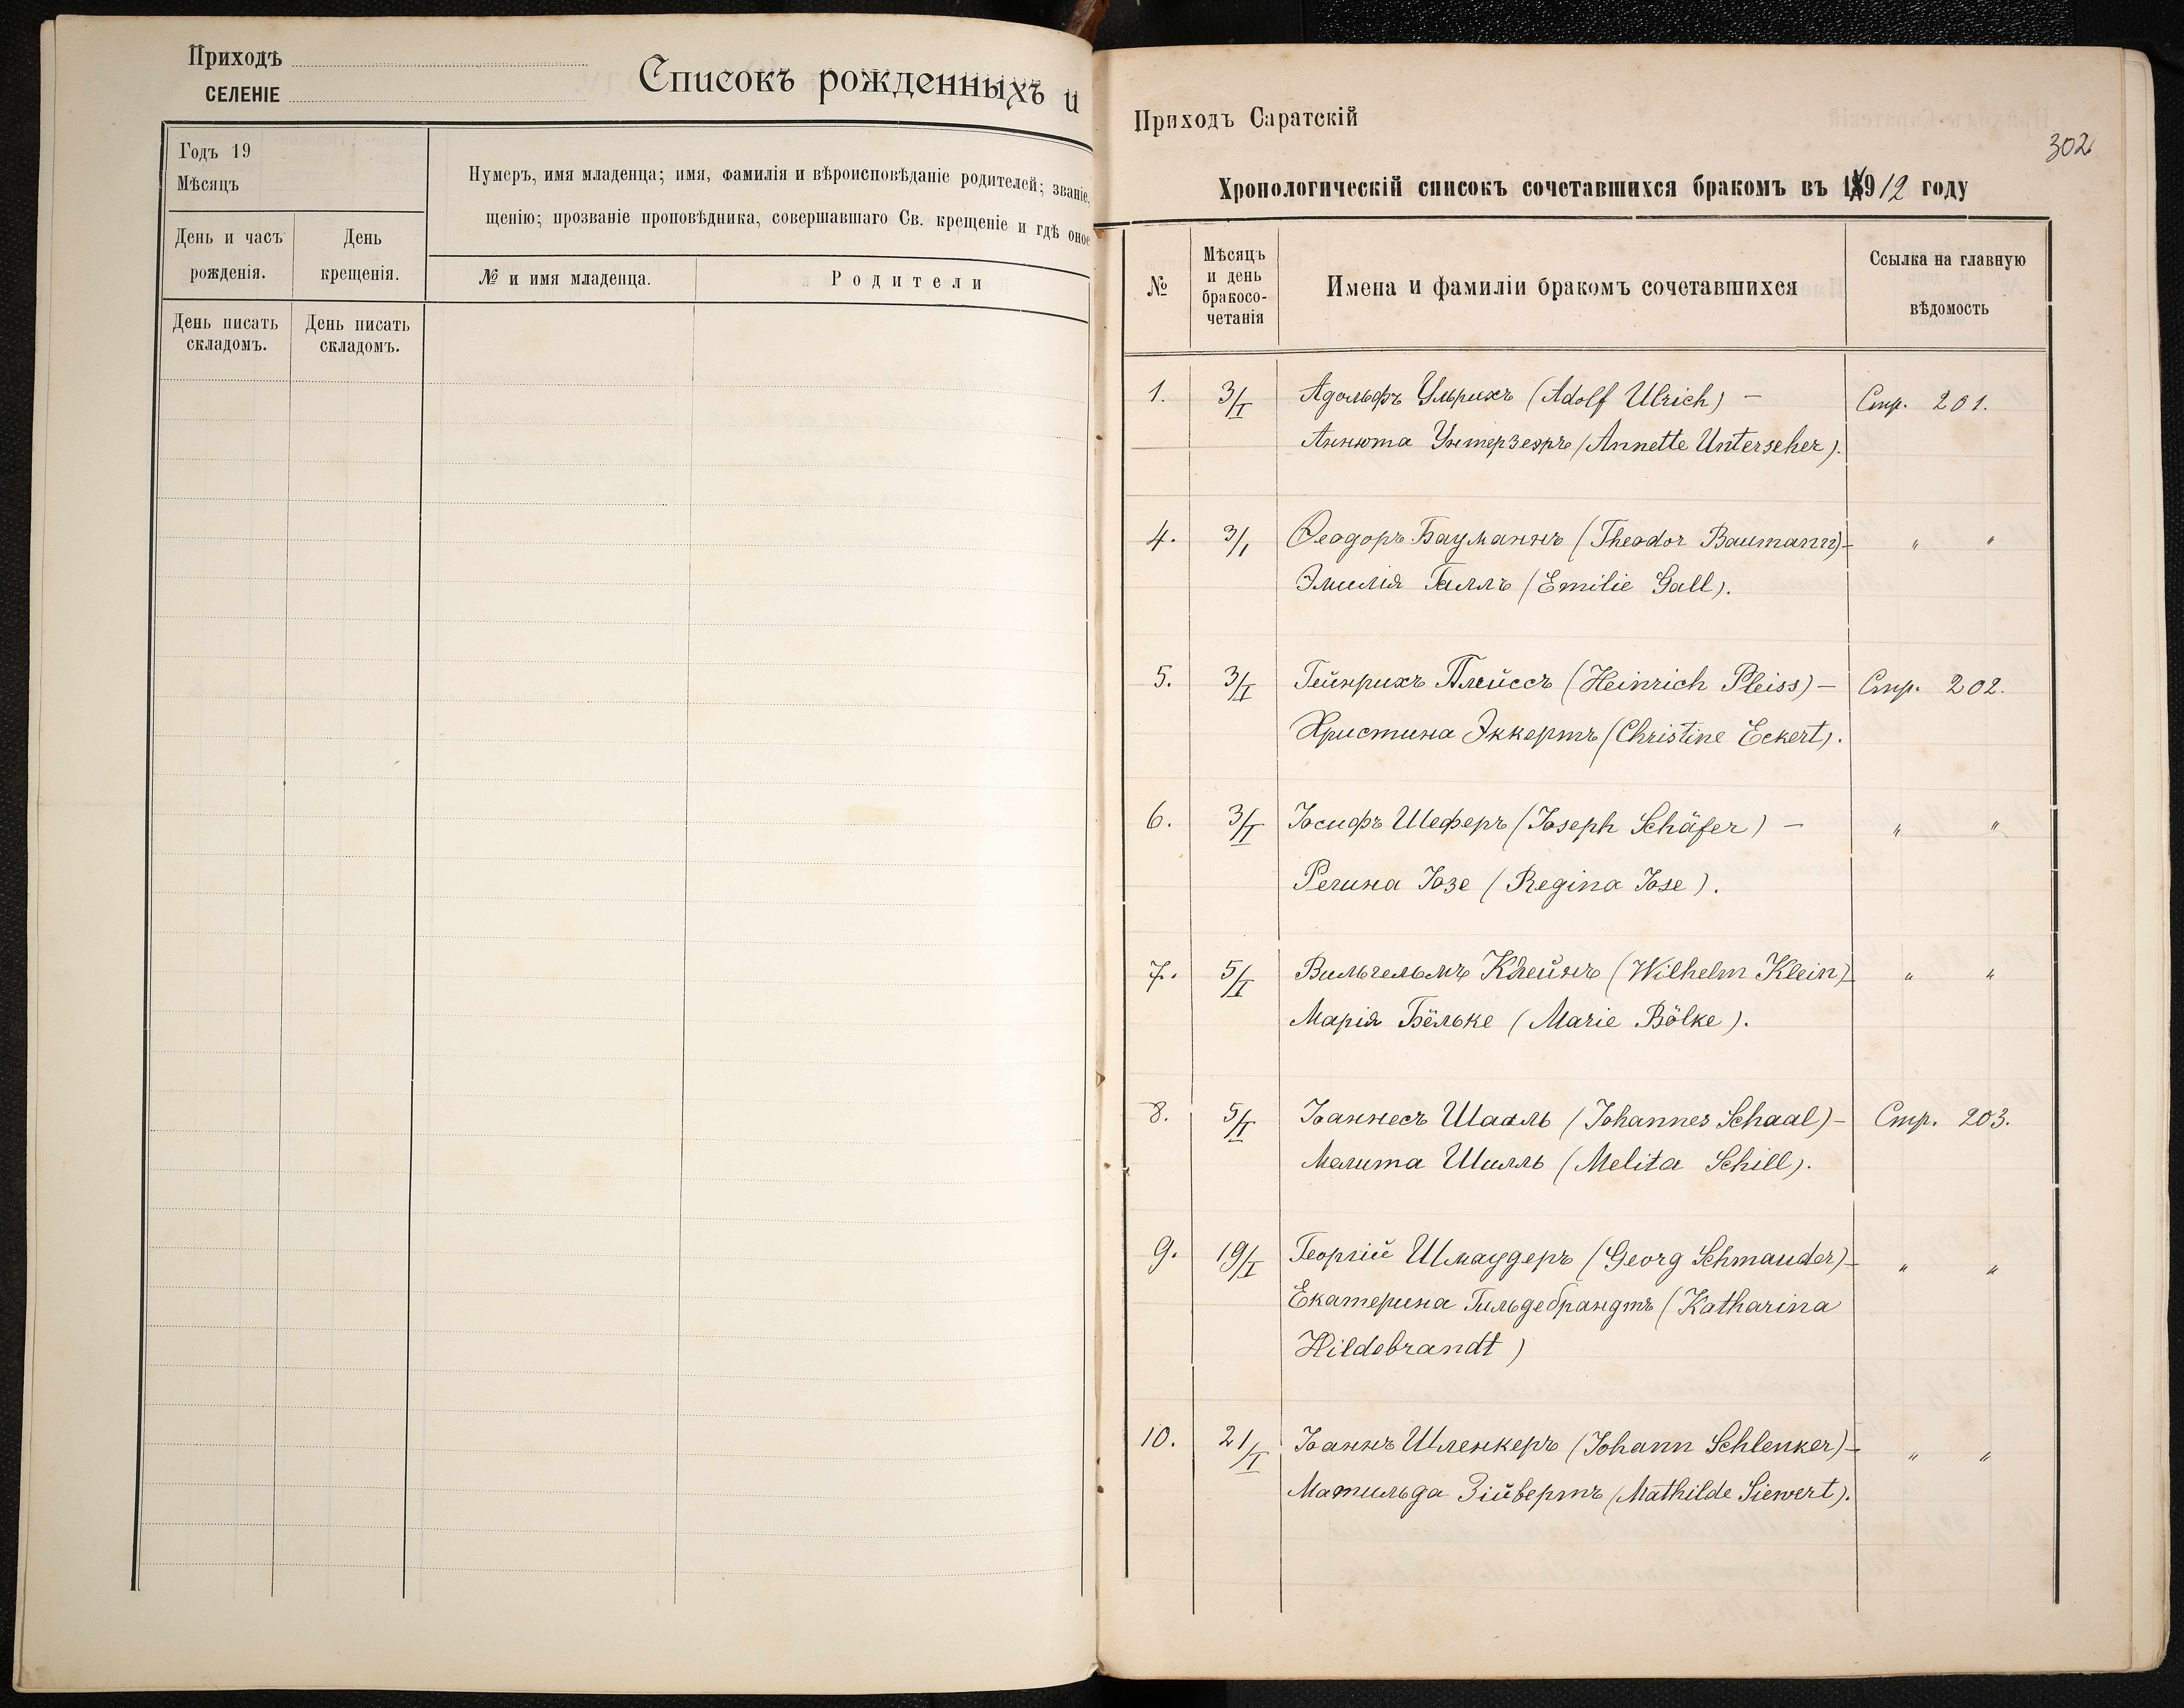 Приходъ
СЕЛЕНІЕ
Списокъ рожденныхъ и
Годъ 19
Мѣсяцъ
Нумеръ, имя младенца; имя, фамилія и вѣроисповѣданіе родителей; званіе,
щенію; прозваніе проповѣдника, совершавшаго Св. крещеніе и гдѣ оное
День и часъ
рожденія.
День
крещенія.
№ и имя младенца.
Родители
День писать
складомъ.
День писать
складомъ.
Приходъ Саратскій
302
Хронологическій списокъ сочетавшихся бракомъ въ 1912 году
№
Мѣсяцъ
и день
бракосо-
четанія
Имена и фамиліи бракомъ сочетавшихся
Ссылка на главную
вѣдомость
1. 3/I Адольфъ Ульрихъ (Adolf Ulrich) – Стр. 201.
Аннюта Унтерзееръ (Annette Unterseher).
4. 3/I Ѳеодоръ Бауманнъ (Theodor Baumann) – " "
Эмилія Галлъ (Emilie Gall).
5. 3/I Гейнрихъ Плейссъ (Heinrich Pleiss) – Стр. 202.
Христина Эккертъ (Christine Eckert).
6. 3/I Іосифъ Шеферъ (Joseph Schäfer) – " "
Регина Іозе (Regina Jose).
7. 5/I Вильгельмъ Клейнъ (Wilhelm Klein) – " "
Марія Бёльке (Marie Bölke).
8. 5/I Іоаннесъ Шааль (Johannes Schaal) – Стр. 203.
Мелита Шилль (Melita Schill).
9. 19/I Георгій Шмаудеръ (Georg Schmauder) – " "
Екатерина Гильдебрандтъ (Katharina
Hildebrandt)
10. 21/I Іоаннъ Шленкеръ (Johann Schlenker) – " "
Матильда Зійвертъ (Mathilde Siewert).